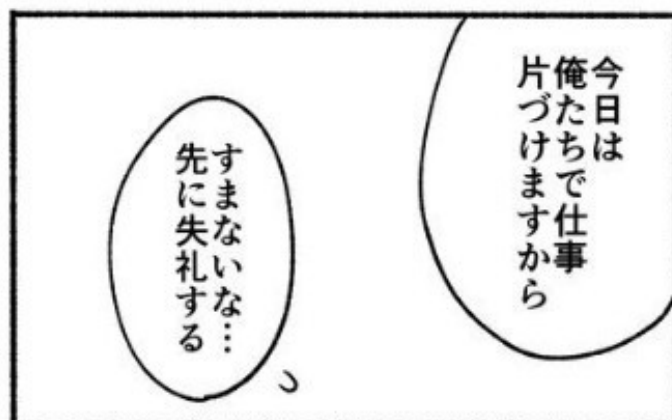 今日は
俺たちで仕事
片づけますから
すまないな…
先に失礼する